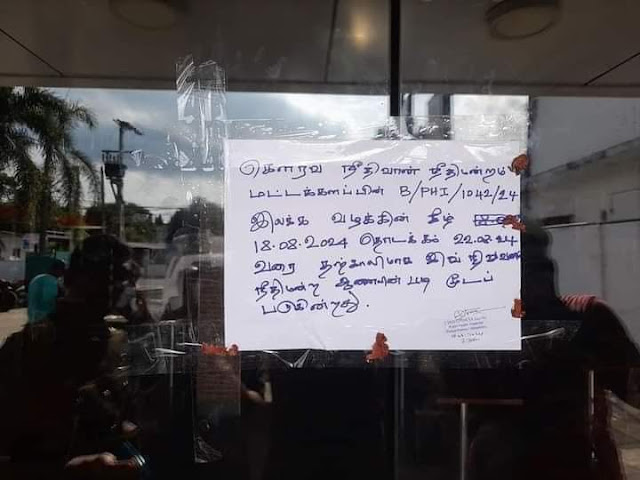 கௌரவ நீதிவான் நீதிமன்றம்
மட்டக்களப்பின் B/PHI/1042/24
இலக்க வழக்கின் கீழ்
18.08.2024 தொடக்கம் 22.08.24
வரை தற்காலிகமாக இந் நிறுவனம்
நீதிமன்ற ஆணையின் படி
படுகின்றது.